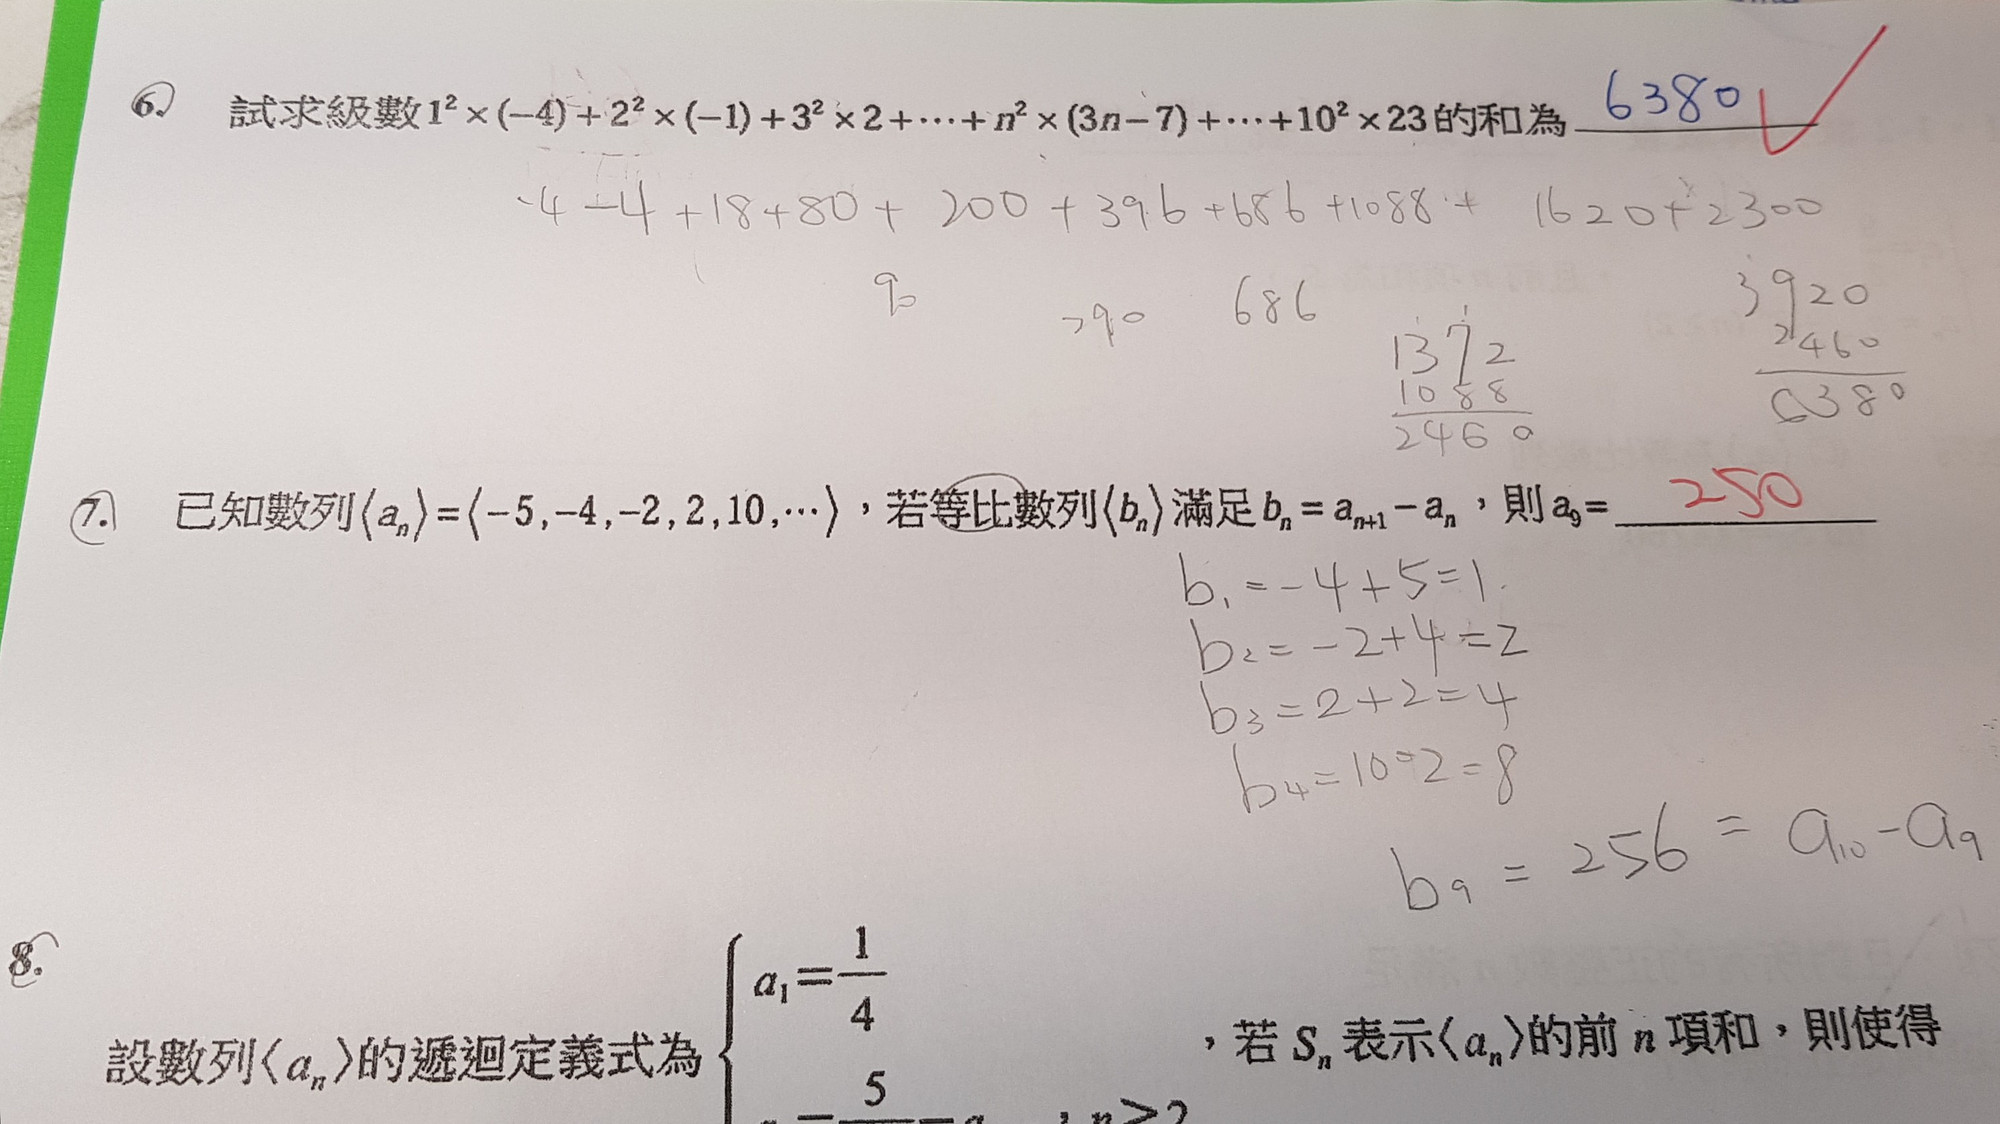 6. 試求級數1²×(−4)+2²×(−1)+3²×2+⋯+n²×(3n−7)+⋯+10²×23的和為 6380
-4 -4 +18+80+ 200 + 396 +686 +1088 + 1620+2300
90
290
686
1372
1088
2460
3920
2460
6380
7. 已知數列⟨aₙ⟩=⟨−5,−4,−2,2,10,⋯⟩,若等比數列⟨bₙ⟩滿足bₙ=aₙ₊₁−aₙ,則a₉= 250
b₁=-4+5=1
b₂=-2+4=2
b₃=2+2=4
b₄=10-2=8
b₉=256=a₁₀-a₉
8.
a₁=1/4
設數列⟨aₙ⟩的遞迴定義式為 ,若Sₙ表示⟨aₙ⟩的前n項和,則使得
5